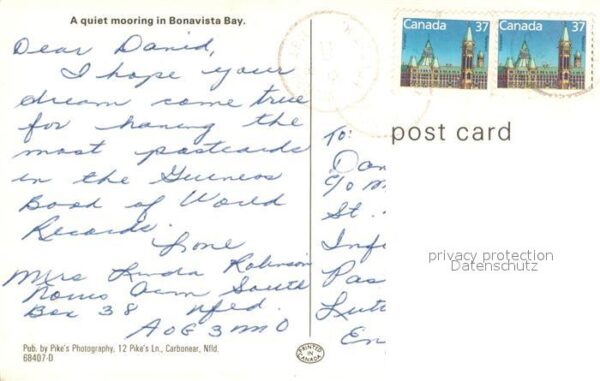 A quiet mooring in Bonavista Bay.
Dear David,
I hope your
dream come true
for having the
most postcards
in the Guiness
Book of World
Records.
Love
Mrs Linda Robinson
Box 38 Nfld.
A0G 3M0
Pub. by Pike's Photography, 12 Pike's Ln., Carbonear, Nfld.
68407-D
PRINTED IN CANADA
Canada 37
Canada 37
post card
To:
c/o M
St.
Inf
Pas
Lut
En
privacy protection
Datenschutz